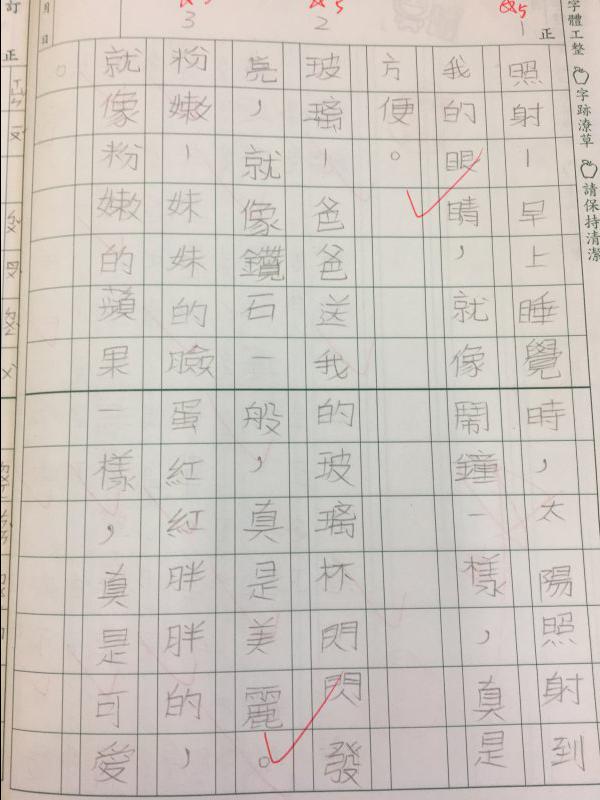 字體工整 字跡潦草 請保持清潔
正
1
2
3
月 日
訂正
照射－早上睡覺時，太陽照射到
我的眼睛，就像鬧鐘一樣，真是
方便。
玻璃－爸爸送我的玻璃杯閃閃發
亮，就像鑽石一般，真是美麗。
粉嫩－妹妹的臉蛋紅紅胖胖的，
就像粉嫩的蘋果一樣，真是可愛
。